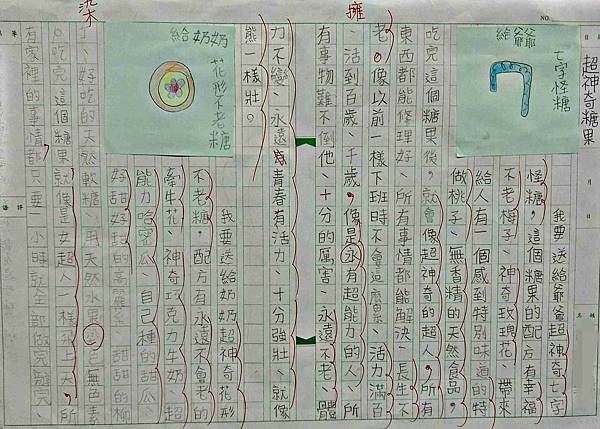 超神奇糖果
NO.
給爺爺
七字怪糖
我要送給爺爺超神奇七字
怪糖,這個糖果的配方有幸福
不老梅子、神奇玫瑰花、帶來
給人有一個感到特別味道的特
做桃子、無香精的天然食品,
吃完這個糖果後,就會像超神奇的超人,所有
東西都能修理好、所有事情都能解決、長生不
老。像以前一樣下班時不會這麼累、活力滿百
擁
、活到百歲、千歲,像是永有超能力的人、所
有事物難不倒他、十分的厲害、永遠不老、體
力不變、永遠青春有活力、十分強壯、就像
熊一樣壯。
給奶奶
花形不老糖
我要送給奶奶超神奇花形
不老糖,配方有永遠不會老的
牽牛花、神奇巧克力牛奶、超
能力哈密瓜、自己種的甜瓜、
好甜好甜的高麗菜、甜甜的柳
丁、好吃的天然軟糖、用天然水果色無色素
染
。吃完這個糖果就像是女超人一樣飛上天,所
有家裡的事情都只要一小時就全部做完、